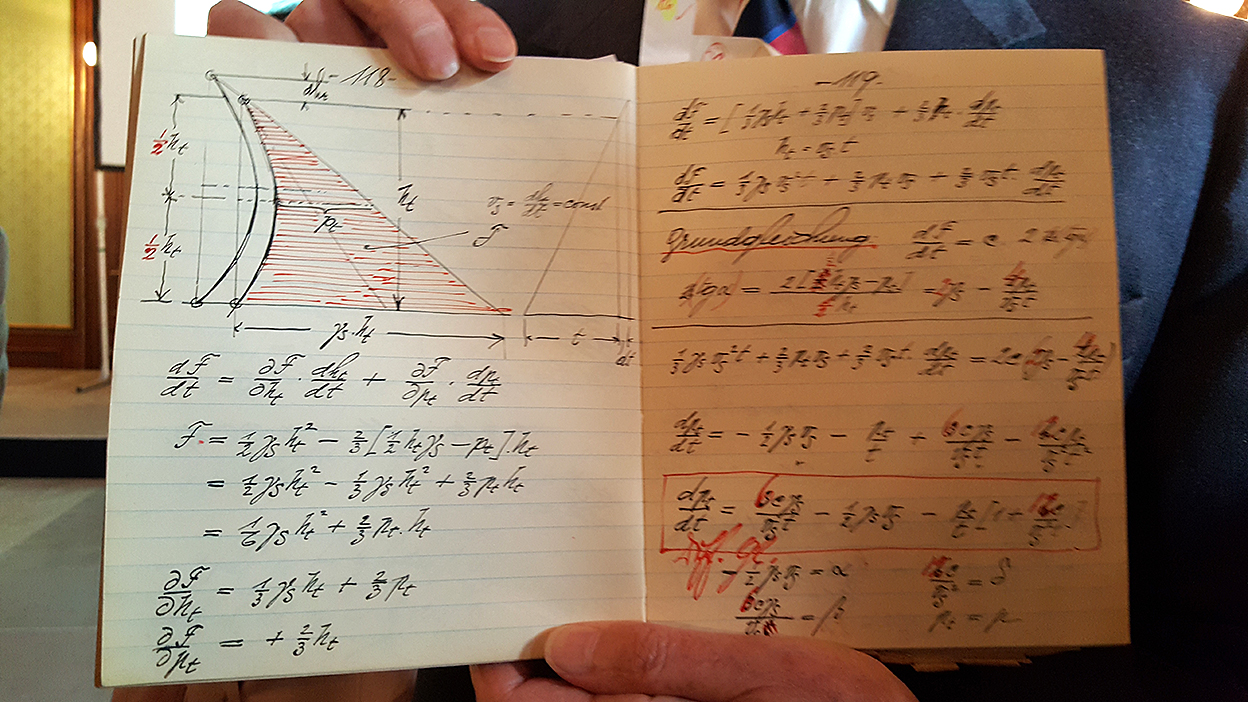 - 118 -
½ h̄t
½ h̄t
pt
h̄t
F
vs = dh/dt = const
γs · h̄t
t
dt
dF/dt = ∂F/∂h̄t · dh̄t/dt + ∂F/∂pt · dpt/dt
F = ½ γs h̄t² − ⅔ [½ h̄t γs − pt] · h̄t
= ½ γs h̄t² − ⅓ γs h̄t² + ⅔ pt h̄t
= ⅙ γs h̄t² + ⅔ pt · h̄t
∂F/∂h̄t = ⅓ γs h̄t + ⅔ pt
∂F/∂pt = + ⅔ h̄t
- 119 -
dF/dt = [⅓ γs h̄t + ⅔ pt] vs + ⅔ h̄t · dpt/dt
h̄t = vs t
dF/dt = ⅓ γs vs² t + ⅔ pt vs + ⅔ vs t · dpt/dt
Grundgleichung dF/dt = c ·
= γs −
⅓ γs vs² t + ⅔ pt vs + ⅔ vs t · dpt/dt = 2c
dpt/dt = − ½ γs vs − pt/t + 6cγs/vs t −
dpt/dt = 6cγs/vs t − ½ γs vs − pt/t [1 +
Diff. gl.
− ½ γs vs = α
= δ
= β
pt = p